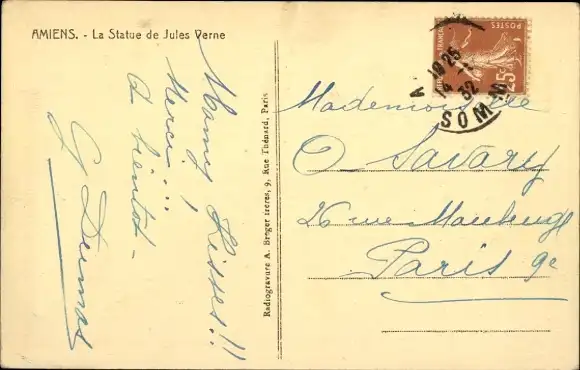 AMIENS. - La Statue de Jules Verne
Many Kisses!!
Merci!
à bientôt -
G Dumas
Radiogravure A. Breger frères, 9, Rue Thénard, Paris
POSTES
25c
19 25
14
32
SOMM
Mademoiselle
O Savary
26 rue Maubeuge
Paris 9e